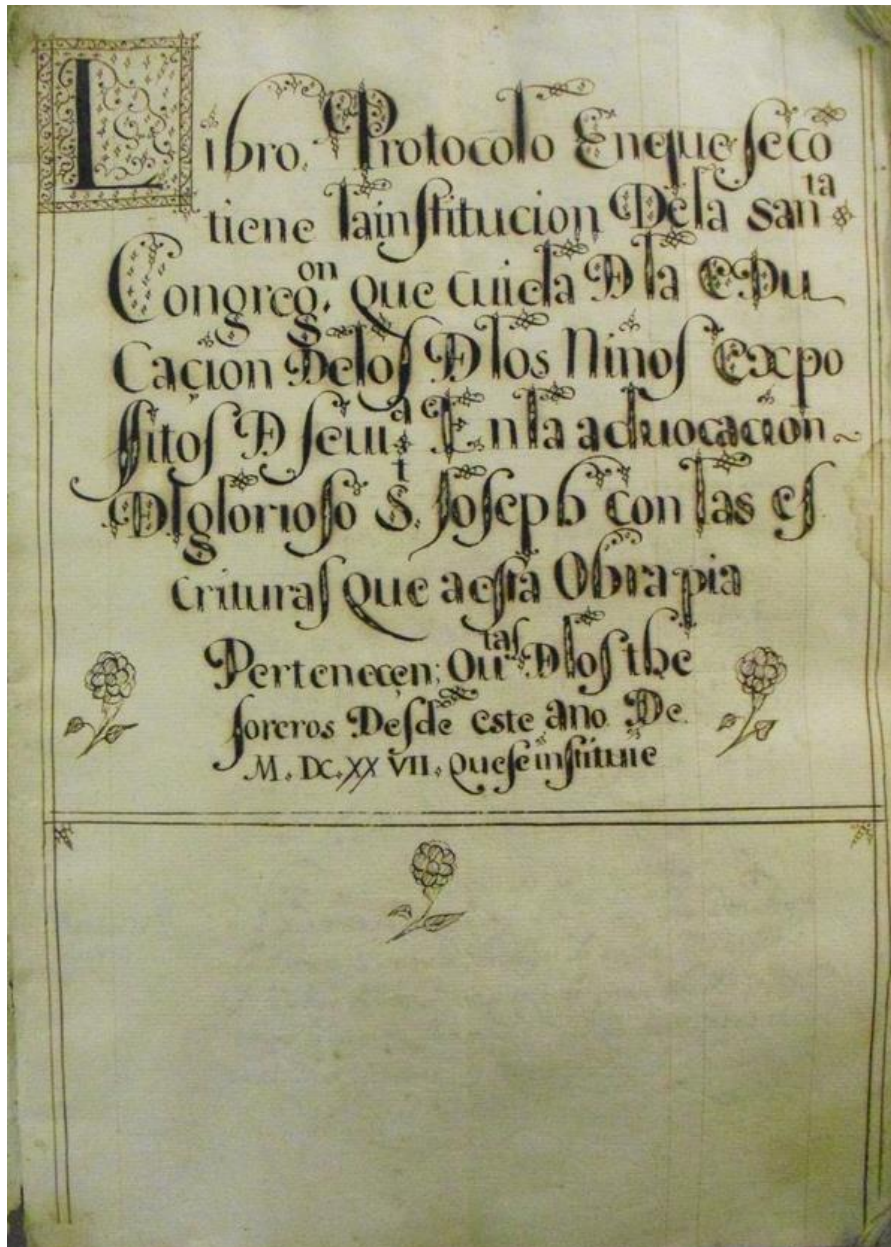 Libro. Protocolo Enque se co
tiene la institucion Dela santa
Congregon. que cuida D la EDu
Cacion Delos D los Niños Expo
sitos D seuia. En la aduocacion
Dl glorioso St. Joseph con las es
crituras que a esta Obra pia
Pertenecen; Qutas D los the
soreros Desde este ano De.
M. DC. XX VII. que se instituie